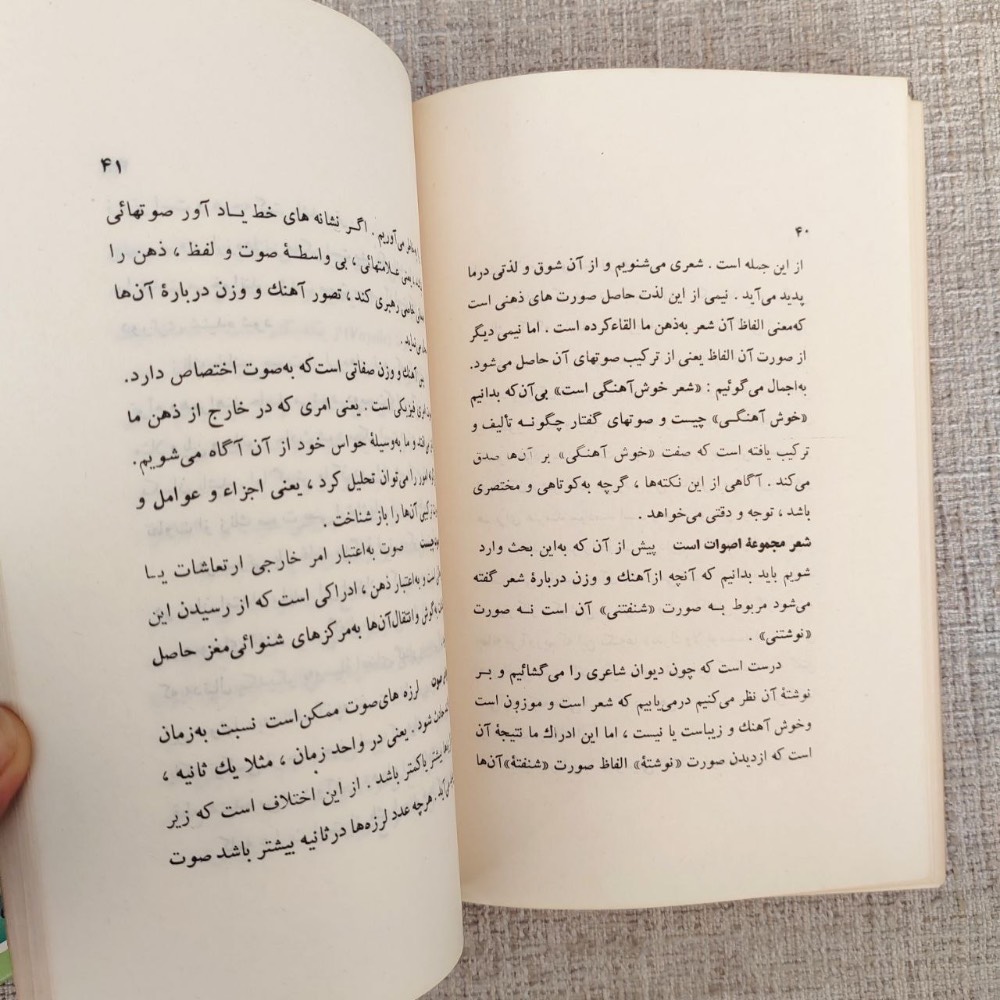 ۴۰
از این جمله است . شعری می‌شنویم و از آن شوق و لذتی درما
پدید می‌آید . نیمی از این لذت حاصل صورت های ذهنی است
که‌معنی الفاظ آن شعر به‌ذهن ما القاءکرده است . اما نیمی دیگر
از صورت آن الفاظ یعنی از ترکیب صوتهای آن حاصل می‌شود.
به‌اجمال می‌گوئیم : «شعر خوش‌آهنگی است» بی‌آن‌که بدانیم
«خوش آهنگی» چیست و صوتهای گفتار چگونه تألیف و
ترکیب یافته است که صفت «خوش آهنگی» بر آن‌ها صدق
می‌کند . آگاهی از این نکته‌ها ، گرچه به‌کوتاهی و مختصری
باشد ، توجه و دقتی می‌خواهد .
شعر مجموعهٔ اصوات است پیش از آن که به‌این بحث وارد
شویم باید بدانیم که آنچه ازآهنك و وزن دربارهٔ شعر گفته
می‌شود مربوط بـه صورت «شنفتنی» آن است نـه صورت
«نوشتنی» .
درست است که چون دیوان شاعری را می‌گشائیم و بـر
نوشتهٔ آن نظر می‌کنیم درمی‌یابیم که شعر است و موزون است
وخوش آهنك و زیباست یا نیست ، اما این ادراك ما نتیجهٔ آن
است که ازدیدن صورت «نوشتهٔ» الفاظ صورت «شنفتهٔ»آن‌ها
۴۱
می‌آوریم . اگـر نشانه های خط یـاد آور صوتهائی
یعنی علامتهائی ، بی واسطـهٔ صوت و لفظ ، ذهن را
خاصی رهبری کند ، تصور آهنك و وزن دربارهٔ آن‌ها
آهنك و وزن صفاتی است‌که به‌صوت اختصاص دارد.
فیزیکی است . یعنی امری که در خارج از ذهن ما
و ما به‌وسیلهٔ حواس خود از آن آگاه می‌شویم.
امور را می‌توان تحلیل کرد ، یعنی اجزاء و عوامل و
ترکیبی آن‌ها را باز شناخت .
صوت به‌اعتبار امر خارجی ارتعاشات یـا
است و به‌اعتبار ذهن ، ادراکی است که از رسیدن این
به‌گوش و انتقال‌آن‌ها به‌مرکزهای شنوائی‌مغز حاصل
صوت لرزه های‌صوت ممکن‌است نسبت به‌زمان
حادث شود . یعنی در واحد زمان ، مثلا یك ثانیه ،
بیشتر یاکمتر باشد . از این اختلاف است که زیر
هرچه عدد لرزه‌ها درثانیه بیشتر باشد صوت